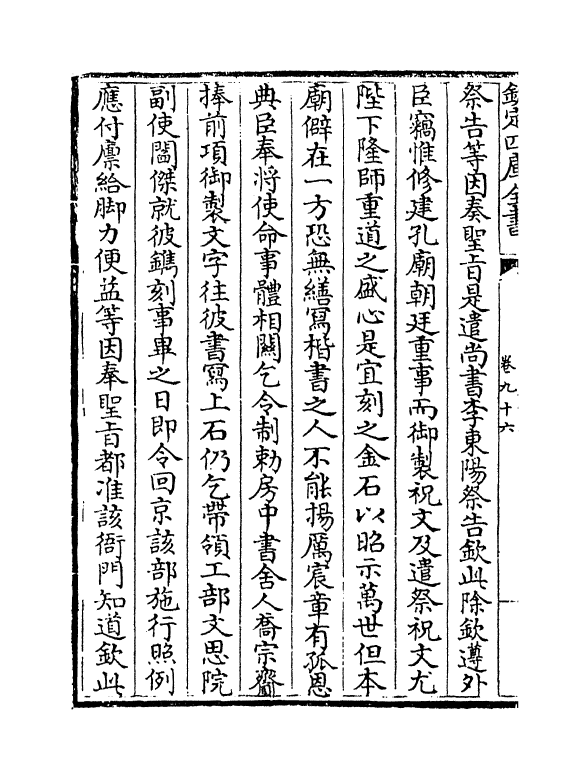 欽定四庫全書
卷九十六
祭告等因奏聖旨是遣尚書李東陽祭告欽此除欽遵外
臣竊惟修建孔廟朝廷重事而御製祝文及遣祭祝文尤
陛下隆師重道之盛心是宜刻之金石以昭示萬世但本
廟僻在一方恐無繕寫楷書之人不能揚厲宸章有孤恩
典臣奉將使命事體相關乞令制勅房中書舍人喬宗齎
捧前項御製文字徃彼書寫上石仍乞帶領工部文思院
副使閻傑就彼鐫刻事畢之日即令回京該部施行照例
應付廪給脚力便益等因奉聖旨都准該衙門知道欽此